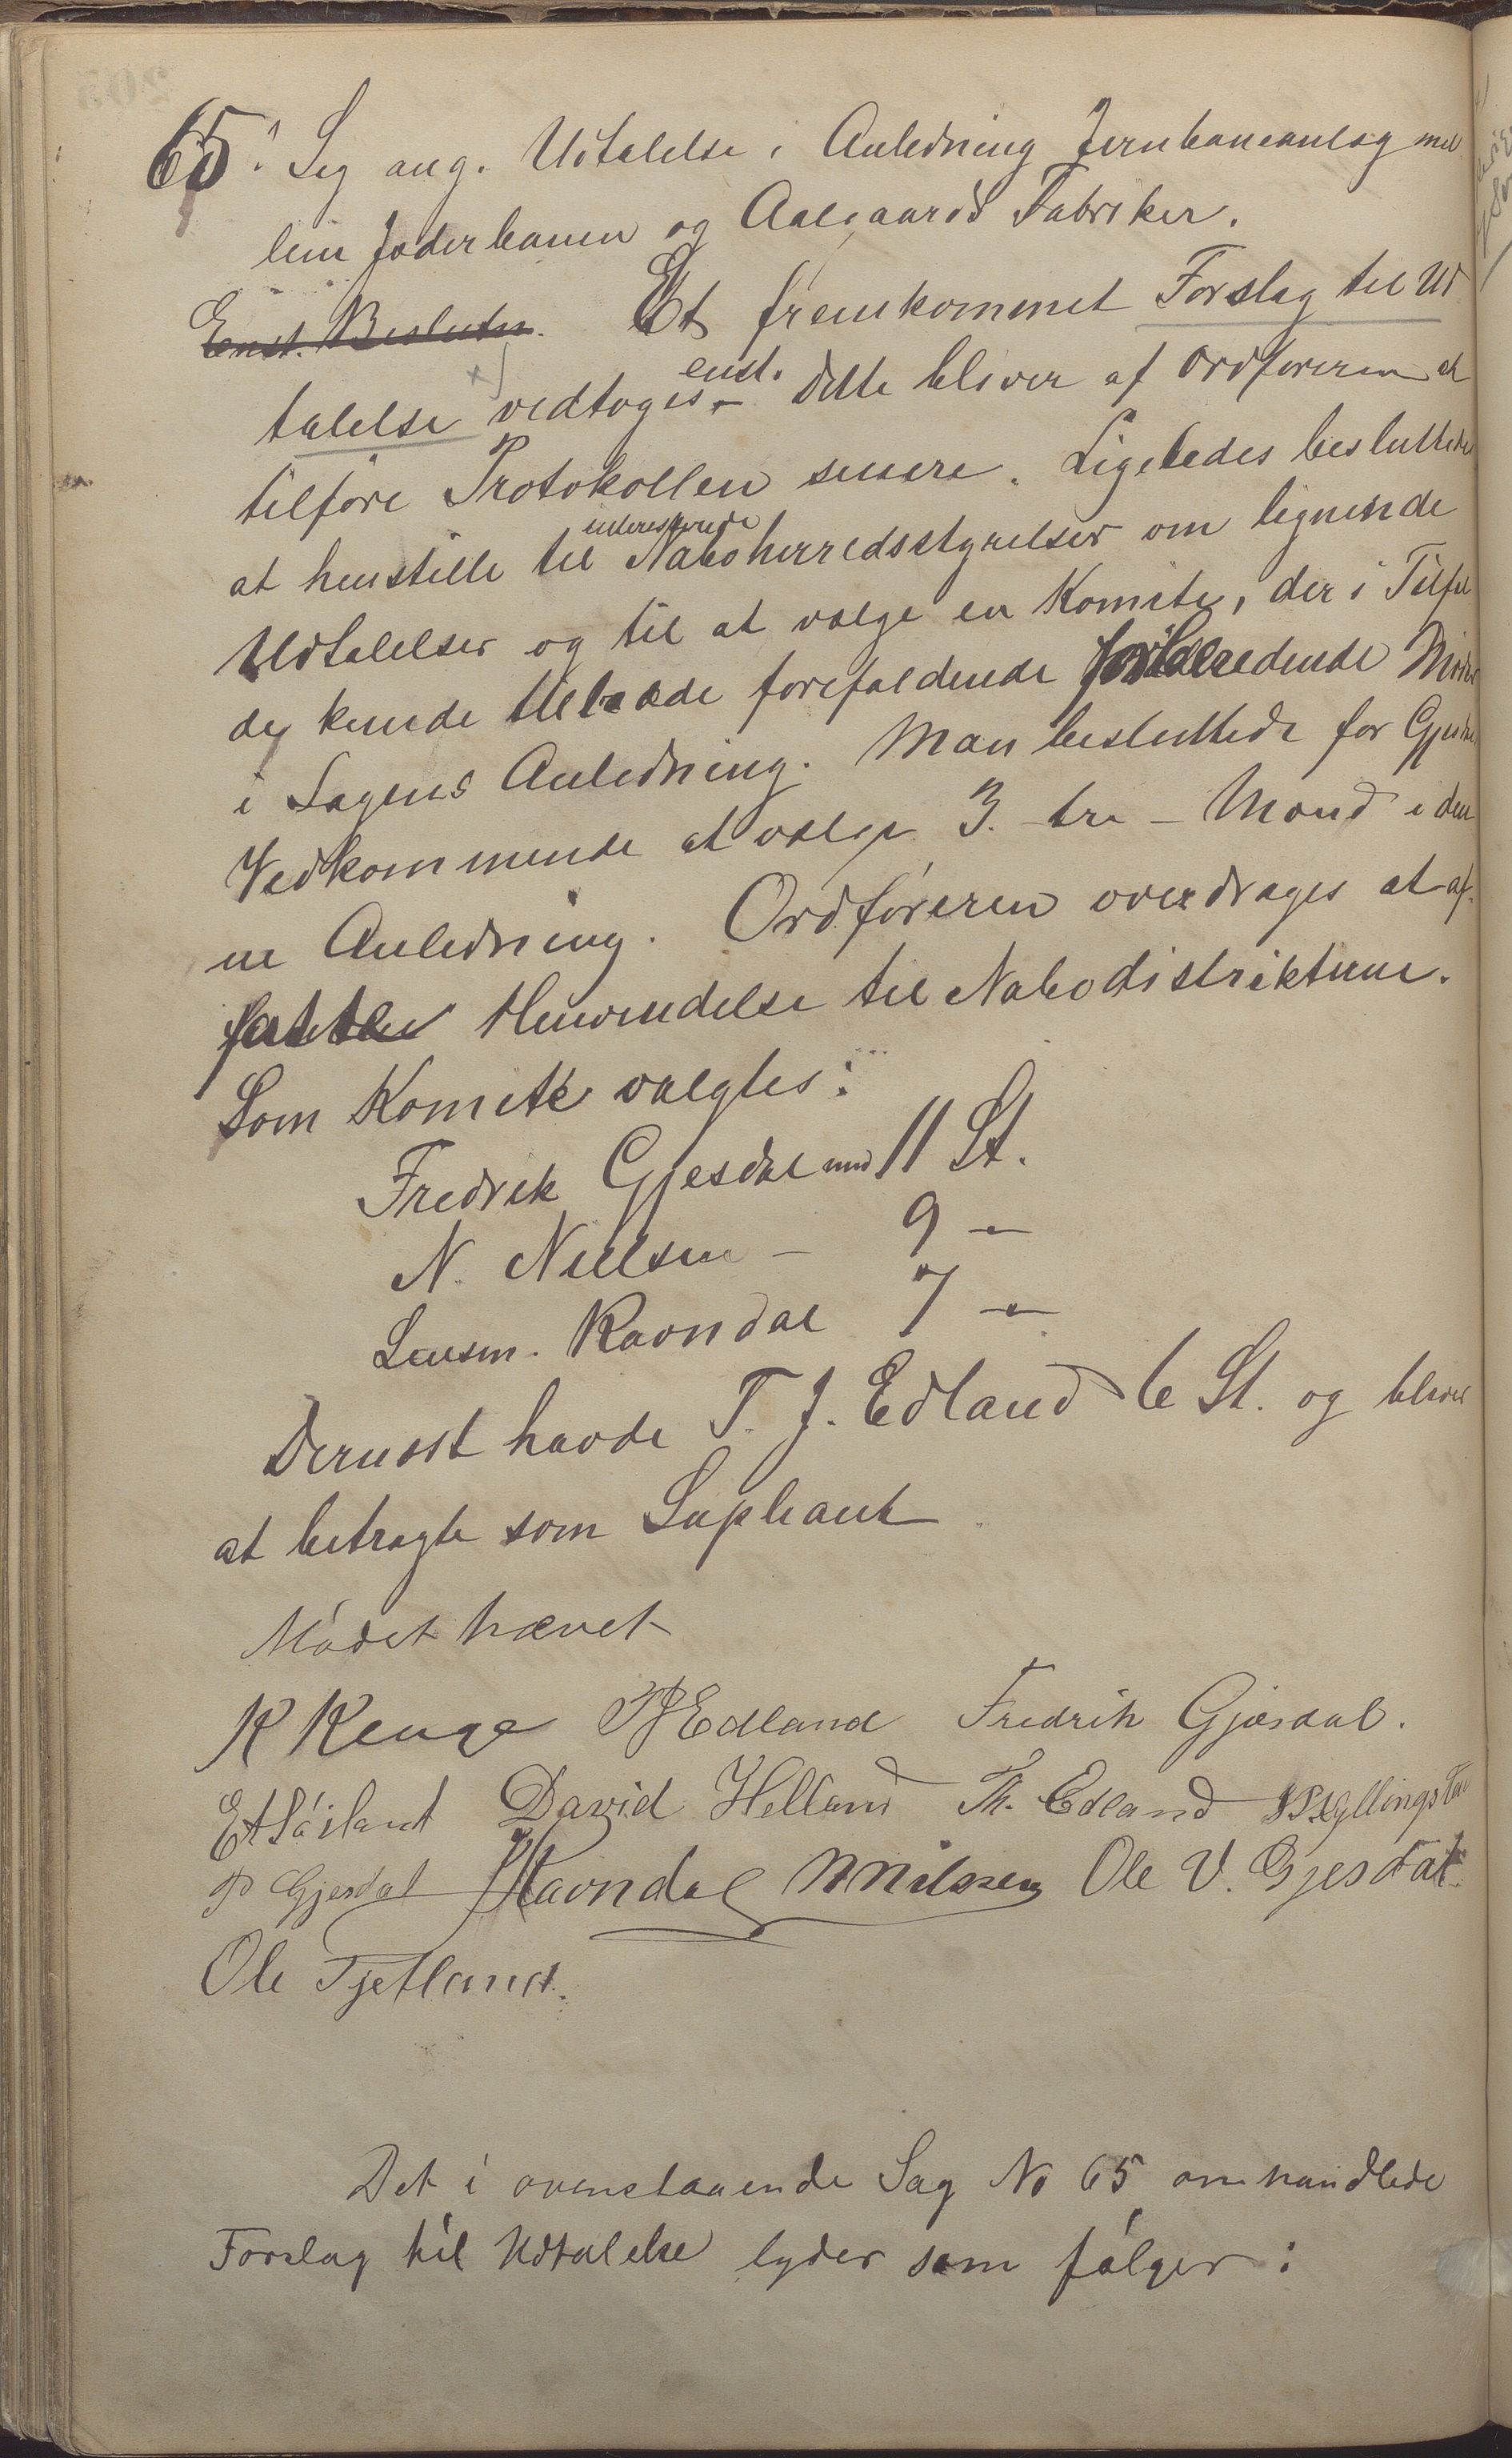 65. Sag ang. Udtalelse i Anledning Jernbaneanlæg mel
lem Jæderbanen og Aalgaards Fabriker.
Enst. Beslutn. Et fremkommet Forslag til Ud
talelse vedtoges enst. Dette bliver af Ordføreren at
tilføre Protokollen senere. Ligeledes besluttedes
at henstille til interesserede Naboherredsstyrelser om lignende
Udtalelser og til at vælge en Komite, der i Tilfæl
de kunde tiltræde forefaldende forberedende Møder
i Sagens Anledning. Man besluttede for Gjesdals
Vedkommende at vælge 3 - tre - Mænd i den
ne Anledning. Ordføreren overdrages at af-
fatte Henvendelse til Nabodistrikterne.
Som Komite valgtes:
Fredrik Gjesdal med 11 St.
N. Nielsen - 9 -
Lensm. Ravndal 7 -
Dernæst havde T. J. Edland 6 St. og bliver
at betragte som Supleant
Mødet hævet
K Kenge TJEdland Fredrik Gjæsdal.
David Helland Th. Edland
P Gjesdal Ravndal NNielssen Ole V. Gjesdal
Ole Tjetland.
Det i ovenstaaende Sag No 65 omhandlede
Forslag til Udtalelse lyder som følger: